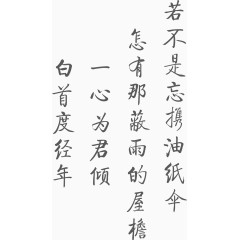 若不是忘携油纸伞
怎有那蔽雨的屋檐
一心为君倾
白首度经年